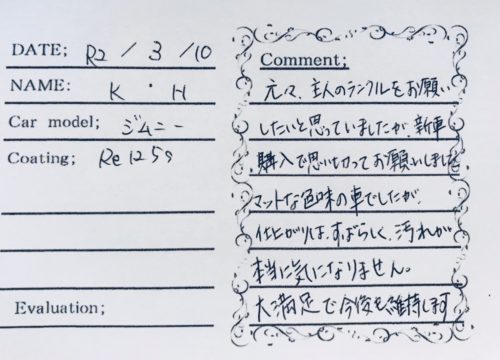 DATE; R2 / 3 / 10
NAME: K ・ H
Car model; ジムニー
Coating; Re1259
Evaluation;
Comment;
元々、主人のランクルをお願い
したいと思っていましたが、新車
購入で思い切ってお願いしました。
マットな色味の車でしたが、
仕上がりは、すばらしく、汚れが
本当に気になりません。
大満足で今後も維持します